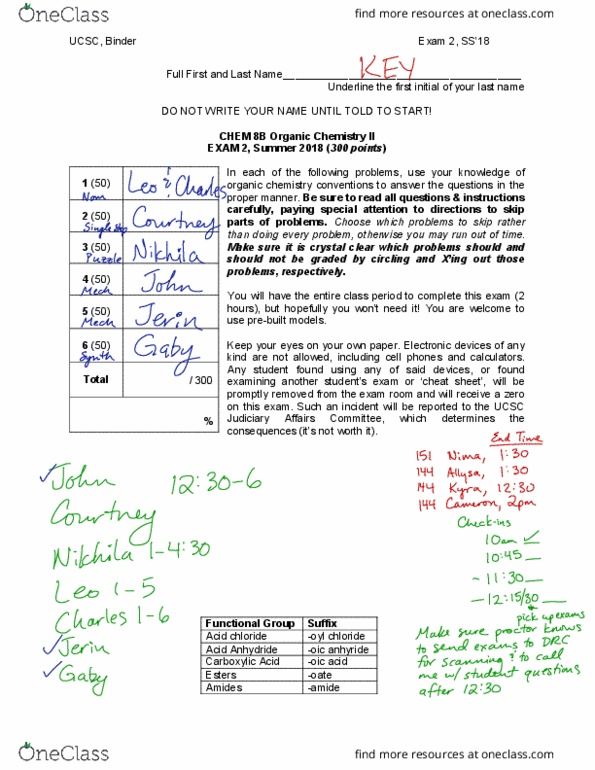 OneClass
find more resources at oneclass.com
UCSC, Binder
Exam 2, SS'18
Full First and Last Name KEY
Underline the first initial of your last name
DO NOT WRITE YOUR NAME UNTIL TOLD TO START!
CHEM 8B Organic Chemistry II
EXAM 2, Summer 2018 (300 points)
1 (50) Nom Leo & Charles
2 (50) Single Step Courtney
3 (50) Puzzle Nikhila
4 (50) Mech John
5 (50) Mech Jerin
6 (50) Synth Gaby
Total / 300
%
In each of the following problems, use your knowledge of
organic chemistry conventions to answer the questions in the
proper manner. Be sure to read all questions & instructions
carefully, paying special attention to directions to skip
parts of problems. Choose which problems to skip rather
than doing every problem, otherwise you may run out of time.
Make sure it is crystal clear which problems should and
should not be graded by circling and X'ing out those
problems, respectively.
You will have the entire class period to complete this exam (2
hours), but hopefully you won't need it! You are welcome to
use pre-built models.
Keep your eyes on your own paper. Electronic devices of any
kind are not allowed, including cell phones and calculators.
Any student found using any of said devices, or found
examining another student's exam or 'cheat sheet', will be
promptly removed from the exam room and will receive a zero
on this exam. Such an incident will be reported to the UCSC
Judiciary Affairs Committee, which determines the
consequences (it's not worth it).
End Time
151 Nima, 1:30
144 Allysa, 1:30
144 Kyra, 12:30
144 Cameron, 2pm
Check-ins
10am ✓
10:45
~ 11:30
~ 12:15/30
pick up exams
Make sure proctor knows
to send exams to DRC
for scanning & to call
me w/ student questions
after 12:30
✓John 12:30-6
Courtney
Nikhila 1-4:30
Leo 1-5
Charles 1-6
✓Jerin
✓Gaby
Functional Group Suffix
Acid chloride -oyl chloride
Acid Anhydride -oic anhyride
Carboxylic Acid -oic acid
Esters -oate
Amides -amide
OneClass
find more resources at oneclass.com